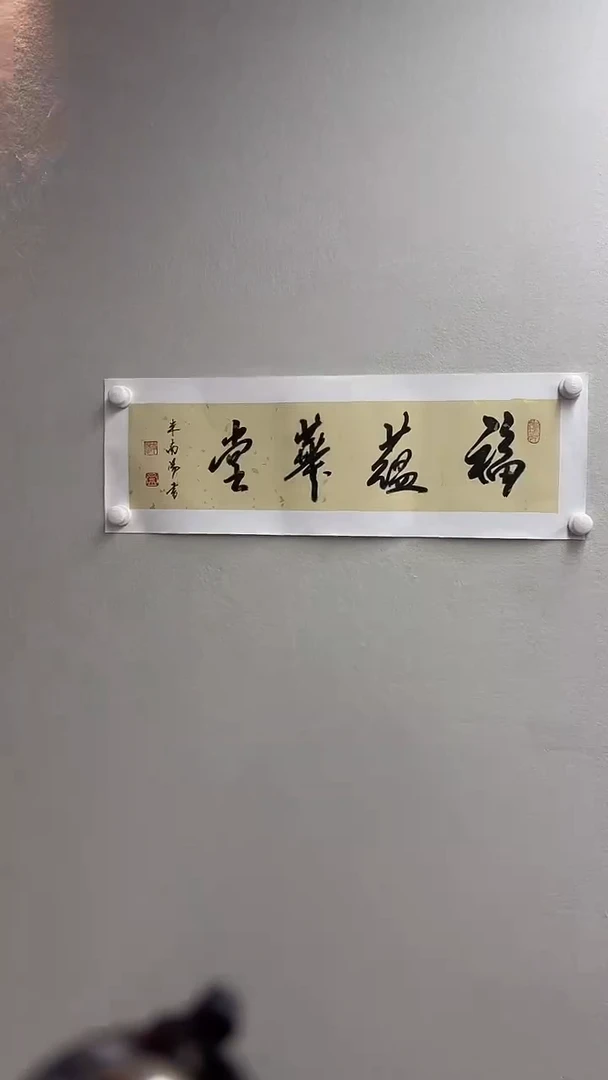 福蕴華堂
米南陽書